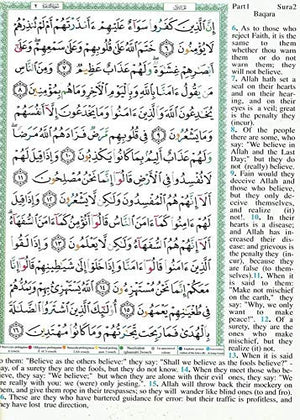 Part1 Sura2
Baqara
إِنَّ ٱلَّذِينَ كَفَرُوا۟ سَوَآءٌ عَلَيْهِمْ ءَأَنذَرْتَهُمْ أَمْ لَمْ تُنذِرْهُمْ
لَا يُؤْمِنُونَ ٦ خَتَمَ ٱللَّهُ عَلَىٰ قُلُوبِهِمْ وَعَلَىٰ سَمْعِهِمْ وَعَلَىٰٓ
أَبْصَٰرِهِمْ غِشَٰوَةٌ وَلَهُمْ عَذَابٌ عَظِيمٌ ٧ وَمِنَ ٱلنَّاسِ
مَن يَقُولُ ءَامَنَّا بِٱللَّهِ وَبِٱلْيَوْمِ ٱلْءَاخِرِ وَمَا هُم بِمُؤْمِنِينَ ٨
يُخَٰدِعُونَ ٱللَّهَ وَٱلَّذِينَ ءَامَنُوا۟ وَمَا يَخْدَعُونَ إِلَّآ أَنفُسَهُمْ
وَمَا يَشْعُرُونَ ٩ فِى قُلُوبِهِم مَّرَضٌ فَزَادَهُمُ ٱللَّهُ مَرَضًا
وَلَهُمْ عَذَابٌ أَلِيمٌۢ بِمَا كَانُوا۟ يَكْذِبُونَ ١٠ وَإِذَا قِيلَ لَهُمْ
لَا تُفْسِدُوا۟ فِى ٱلْأَرْضِ قَالُوٓا۟ إِنَّمَا نَحْنُ مُصْلِحُونَ ١١
أَلَآ إِنَّهُمْ هُمُ ٱلْمُفْسِدُونَ وَلَٰكِن لَّا يَشْعُرُونَ ١٢ وَإِذَا قِيلَ
لَهُمْ ءَامِنُوا۟ كَمَآ ءَامَنَ ٱلنَّاسُ قَالُوٓا۟ أَنُؤْمِنُ كَمَآ ءَامَنَ ٱلسُّفَهَآءُ
أَلَآ إِنَّهُمْ هُمُ ٱلسُّفَهَآءُ وَلَٰكِن لَّا يَعْلَمُونَ ١٣ وَإِذَا لَقُوا۟
ٱلَّذِينَ ءَامَنُوا۟ قَالُوٓا۟ ءَامَنَّا وَإِذَا خَلَوْا۟ إِلَىٰ شَيَٰطِينِهِمْ قَالُوٓا۟ إِنَّا
مَعَكُمْ إِنَّمَا نَحْنُ مُسْتَهْزِءُونَ ١٤ ٱللَّهُ يَسْتَهْزِئُ بِهِمْ وَيَمُدُّهُمْ
فِى طُغْيَٰنِهِمْ يَعْمَهُونَ ١٥ أُو۟لَٰٓئِكَ ٱلَّذِينَ ٱشْتَرَوُا۟ ٱلضَّلَٰلَةَ
بِٱلْهُدَىٰ فَمَا رَبِحَت تِّجَٰرَتُهُمْ وَمَا كَانُوا۟ مُهْتَدِينَ ١٦
6. As to those who
reject Faith, it is the
same to them
whether thou warn
them or do not
warn them; they
will not believe.
7. Allah hath set a
seal on their hearts
and on their hear-
ing, and on their
eyes is a veil; great
is the penalty they
(incur).
8. Of the people
there are some, who
say: "We believe in
Allah and the Last
Day;" but they do
not (really) believe.
9. Fain would they
deceive Allah and
those who believe,
but they only de-
ceive themselves,
and realize (it)
not!. 10. In their
hearts is a disease;
and Allah has in-
creased their dis-
ease: and grievous is
the penalty they (in-
cur), because they
are false (to them-
selves).11. When it
is said to them:
"Make not mischief
on the earth," they
say: "Why, we only
want to make
peace!". 12. Of a
surety, they are the
ones who make
mischief, but they
realize (it) not.
13. When it is said
o them: "Believe as the others believe:" they say: "Shall we believe as the fools believe?" -
ay, of a surety they are the fools, but they do not know. 14. When they meet those who be-
ieve, they say: "We believe;" but when they are alone with their evil ones, they say: "We
re really with you; we (were) only jesting". 15. Allah will throw back their mockery on
hem, and give them rope in their trespasses; so they will wander like blind ones (to and fro).
6. These are they who have bartered guidance for error: but their traffic is profitless, and
ey have lost true direction,